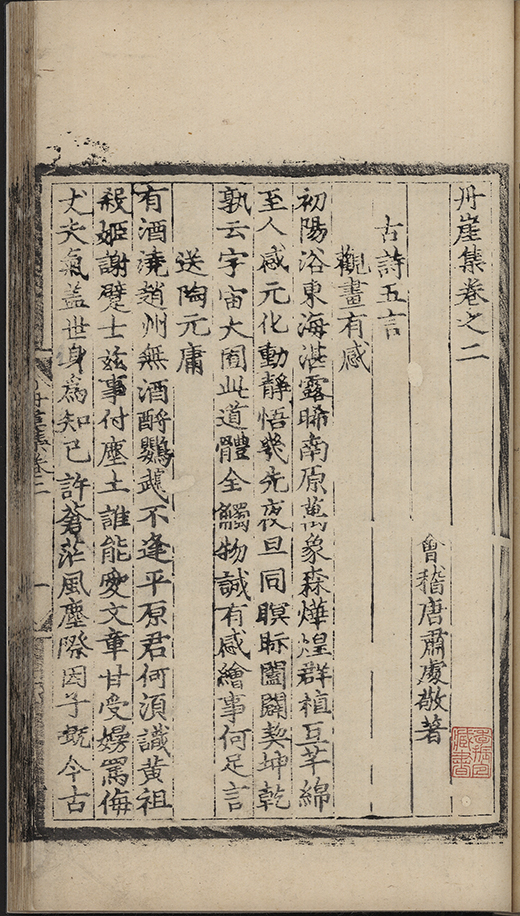 丹崖集卷之二
會稽唐肅處敬著
古詩五言
觀畫有感
初陽浴東海湛露晞南原萬象森燁煌群植互芊綿
至人感元化動静悟幾先夜旦同瞑眎闔闢契坤乾
孰云宇宙大囿此道體全觸物誠有感繪事何足言
送陶元庸
有酒澆趙州無酒酹鸚鵡不逢平原君何湏識黄祖
殺姬謝躄士兹事付塵土誰能愛文章甘受嫚罵侮
丈夫氣盖世身爲知己許蒼茫風塵際因子慨今古
丹崖集卷二
一
藏書